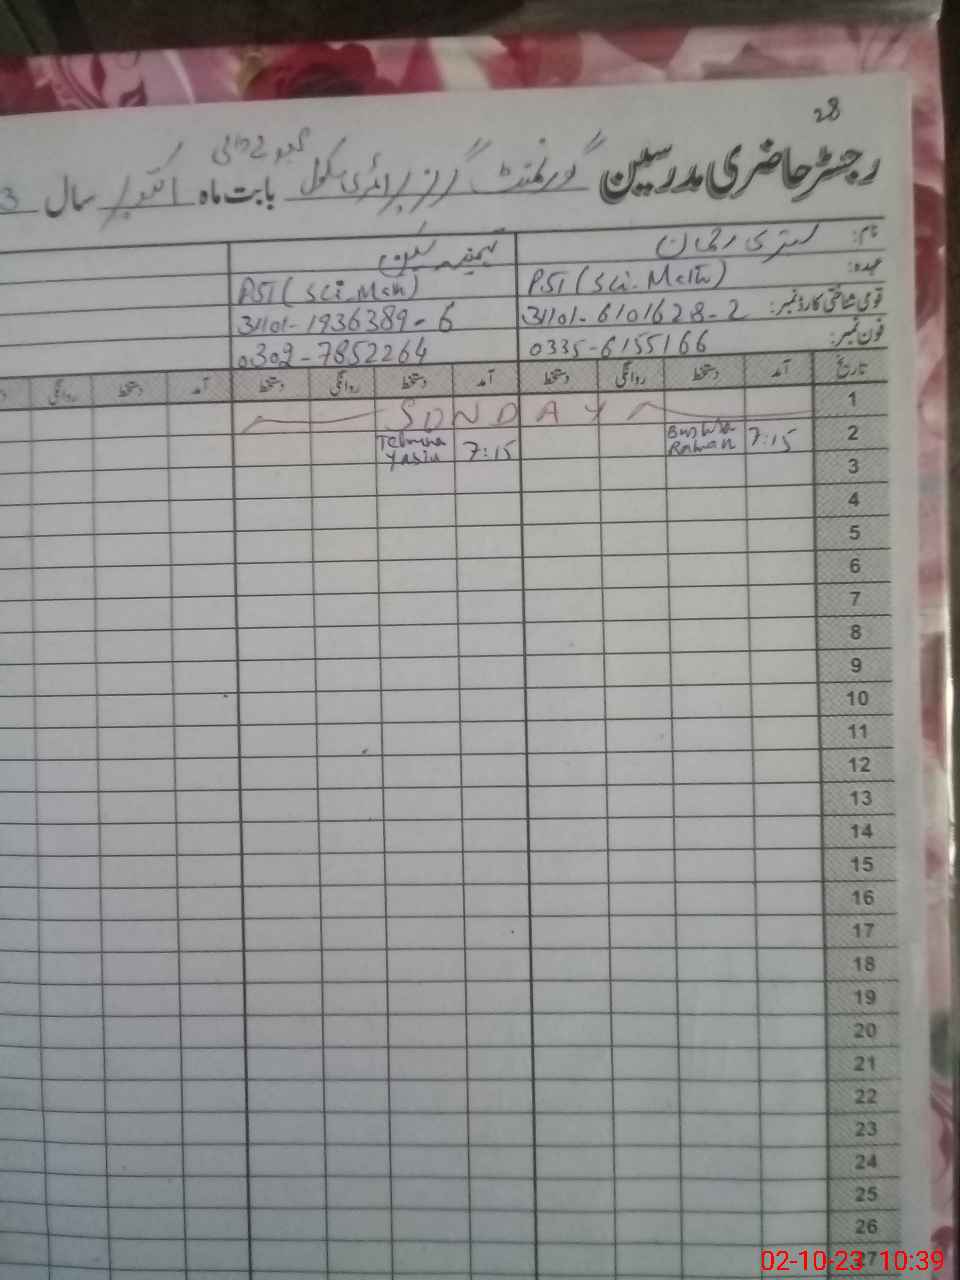 28
رجسٹر حاضری مدرسین گورنمنٹ گرلز پرائمری سکول بابت ماہ اکتوبر سال 3
نام: بشری رحمان
عہدہ: PST (Sci. Math) PST (Sci. Math)
قومی شناختی کارڈ نمبر: 31101-6101628-2 31101-1936389-6
فون نمبر: 0335-6155166 0302-7852264
تاریخ آمد دستخط روانگی دستخط آمد دستخط روانگی دستخط آمد دستخط روانگی
1 SUNDAY
2 7:15 Bushra Rahman 7:15 Tehmina Yasin
3
4
5
6
7
8
9
10
11
12
13
14
15
16
17
18
19
20
21
22
23
24
25
26
27
02-10-23 10:39